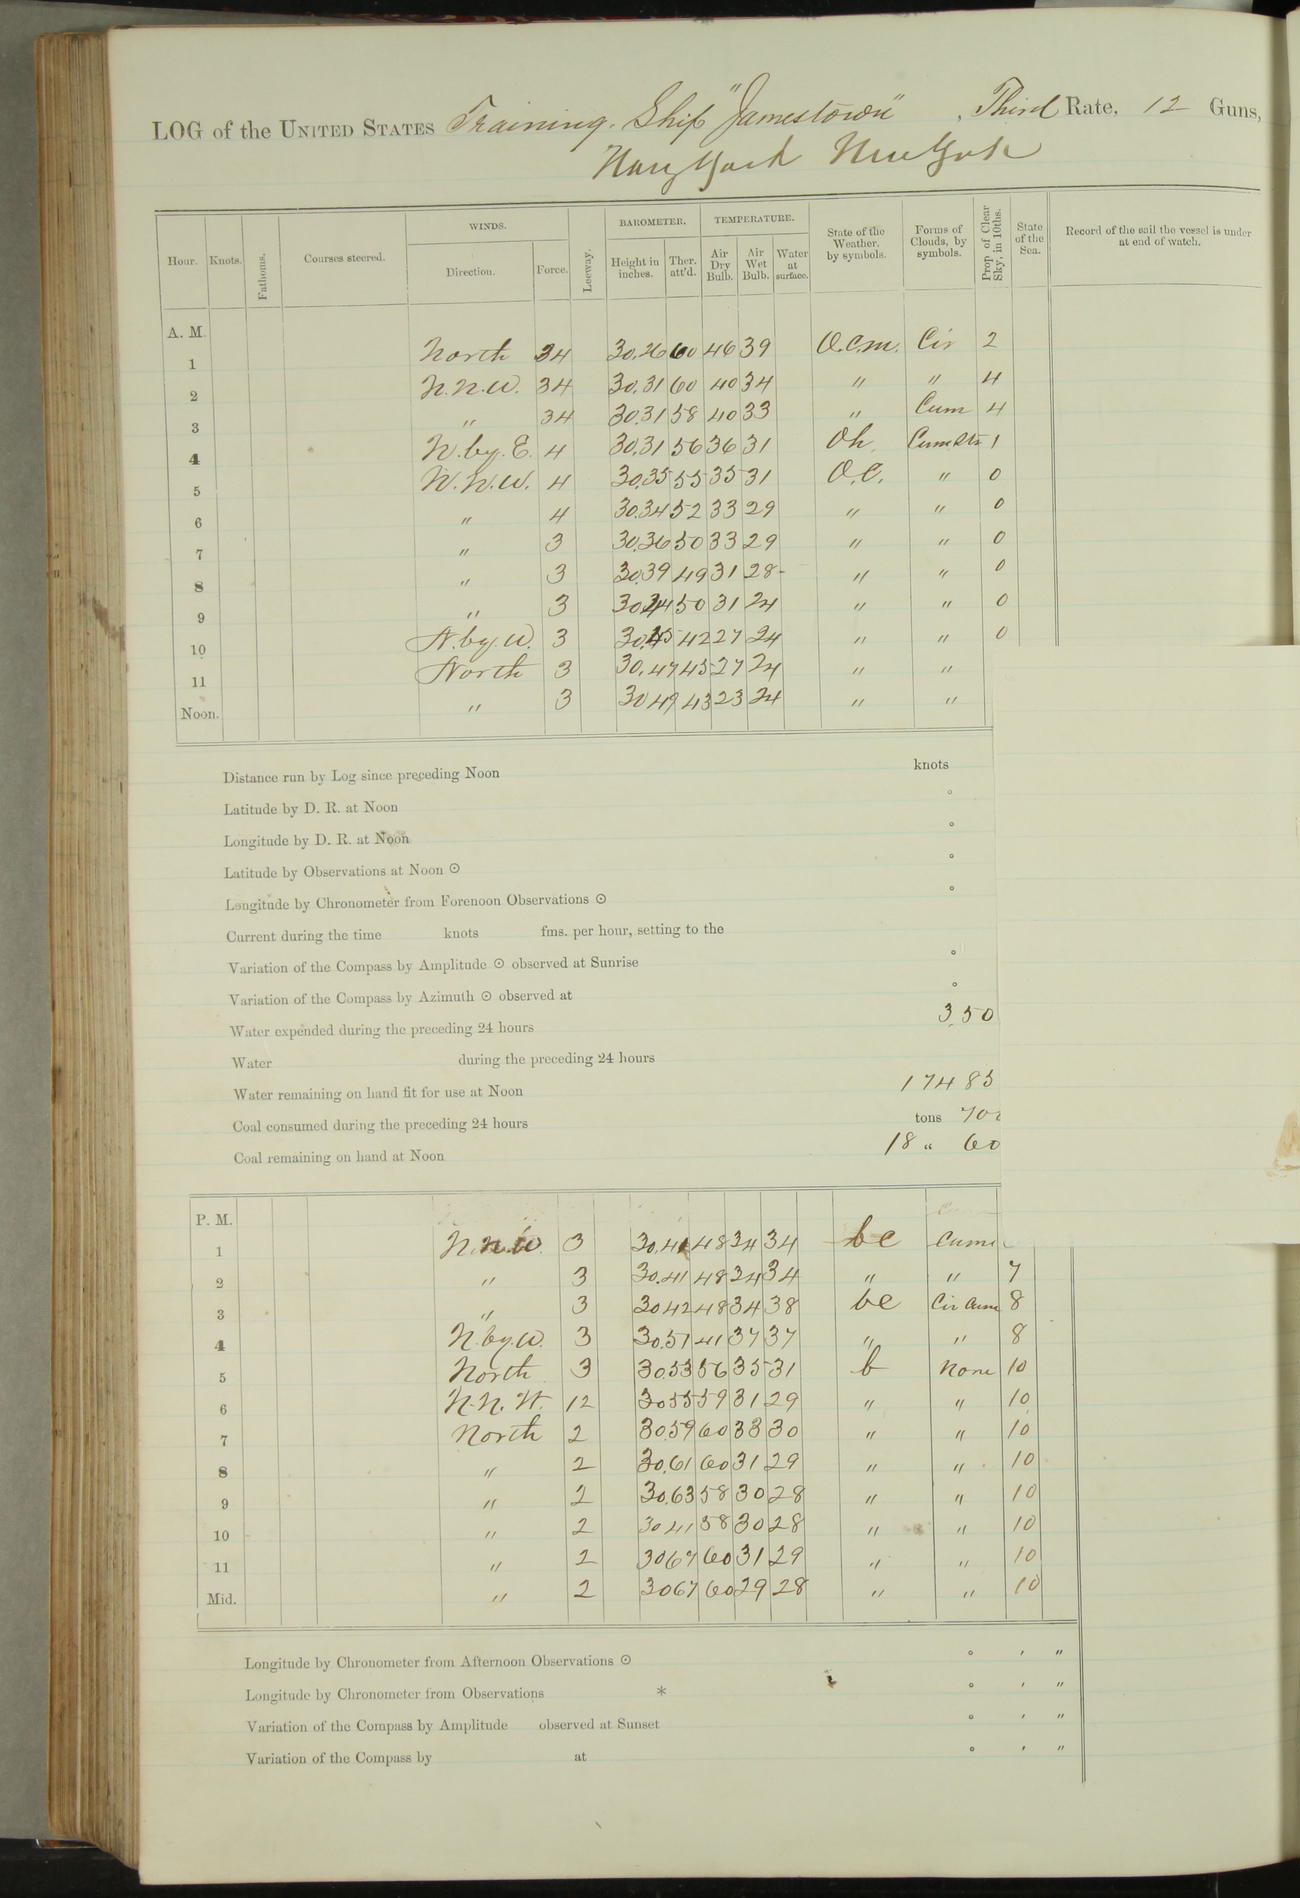 LOG of the UNITED STATES Training Ship "Jamestown", Third Rate, 12 Guns,
Navy Yard New York
Hour. Knots. Fathoms. Courses steered. WINDS. Direction. Force. Leeway. BAROMETER. Height in inches. Ther. att'd. TEMPERATURE. Air Dry Bulb. Air Wet Bulb. Water at surface. State of the Weather, by symbols. Forms of Clouds, by symbols. Prop of Clear Sky, in 10ths. State of the Sea. Record of the sail the vessel is under at end of watch.
A. M.
1 North 34 30.26 60 46 39 O.C.m. Cir 2
2 N.N.W. 34 30.31 60 40 34 " " 4
3 " 34 30.31 58 40 33 " Cum 4
4 N. by. E. 4 30.31 56 36 31 Oh. Cum Str 1
5 N.N.W. 4 30.35 55 35 31 O.C. " 0
6 " 4 30.34 52 33 29 " " 0
7 " 3 30.36 50 33 29 " " 0
8 " 3 30.39 49 31 28 " " 0
9 " 3 30.44 50 31 24 " " 0
10 N. by. W. 3 30.45 42 27 24 " " 0
11 North 3 30.47 45 27 24 " "
Noon. " 3 30 49 43 23 24 " "
Distance run by Log since preceding Noon knots
Latitude by D. R. at Noon °
Longitude by D. R. at Noon °
Latitude by Observations at Noon ☉ °
Longitude by Chronometer from Forenoon Observations ☉ °
Current during the time knots fms. per hour, setting to the
Variation of the Compass by Amplitude ☉ observed at Sunrise °
Variation of the Compass by Azimuth ☉ observed at °
Water expended during the preceding 24 hours 350
Water during the preceding 24 hours
Water remaining on hand fit for use at Noon 17485
Coal consumed during the preceding 24 hours tons 700
Coal remaining on hand at Noon 18 " 60
P. M.
1 N.N.W. 3 30.41 48 34 34 bc Cum
2 " 3 30.41 48 34 34 " " 7
3 " 3 30 42 48 34 38 bc Cir Cum 8
4 N. by. W. 3 30.51 41 37 37 " " 8
5 North 3 30.53 56 35 31 b None 10
6 N.N.W. 12 30 55 59 31 29 " " 10
7 North 2 30.59 60 33 30 " " 10
8 " 2 30.61 60 31 29 " " 10
9 " 2 30.63 58 30 28 " " 10
10 " 2 30 41 58 30 28 " " 10
11 " 2 30 67 60 31 29 " " 10
Mid. " 2 30 67 60 29 28 " " 10
Longitude by Chronometer from Afternoon Observations ☉ ° ' "
Longitude by Chronometer from Observations * ° ' "
Variation of the Compass by Amplitude observed at Sunset ° ' "
Variation of the Compass by at ° ' "